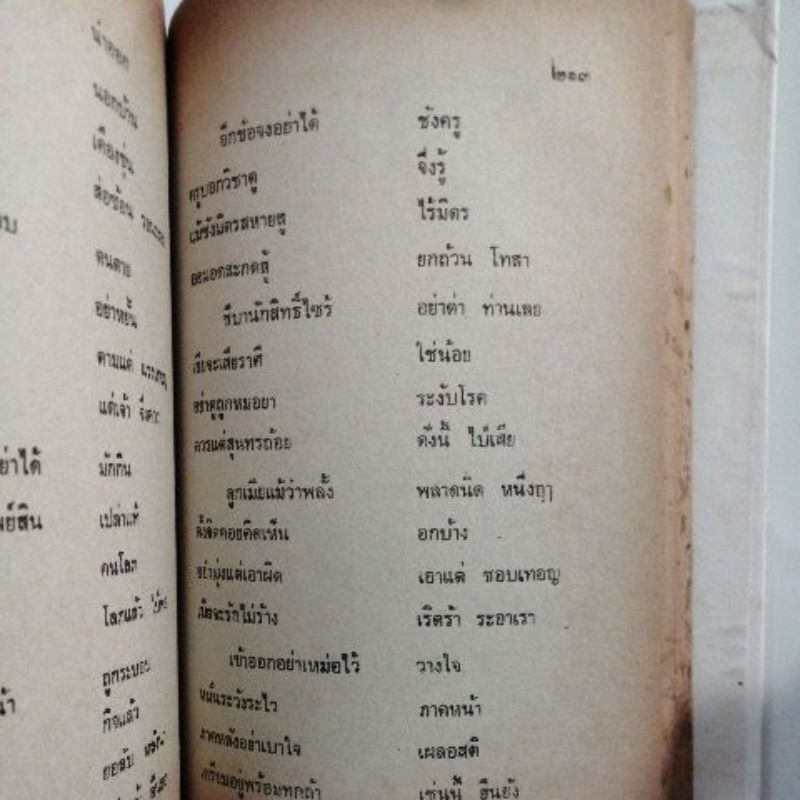 นอกบ้าน
เคืองขุ่น
ส่อซ้อน
คนตาย
อย่าหยัน
ตามแต่
แต่เจ้า
ย่าได้ มักกิน
พย์สิน เปล่าแท้
คนโลภ
โลกแล้ว
ถูกระบอบ
กิจแล้ว
ยอลับ
๒๑๓
อีกข้อจงอย่าได้ ชังครู
ครูบอกวิชาดู จึงรู้
แม้ชังมิตรสหายสู ไร้มิตร
อดมอดสะกดสู้ ยกถ้วน โทสา
ชีบานักสิทธิ์ไซร้ อย่าด่า ท่านเลย
เขือจะเสียราศี ใช่น้อย
อย่าดูถูกหมอยา ระงับโรค
ควรแต่สุนทรถ้อย ดั่งนี้ ไป่เสีย
ลูกเมียแม้ว่าพลั้ง พลาดนิด หนึ่งฤๅ
คิดคอยคิดเห็น อกบ้าง
อย่ามุ่งแต่เอาผิด เอาแต่ ชอบเทอญ
เมียจะรักไม่ร้าง เริดร้า ระอาเรา
เข้าออกอย่าเหม่อไว้ วางใจ
หมั่นระวังระไว ภาคหน้า
ภาคหลังอย่าเบาใจ เผลอสติ
เตรียมอยู่พร้อมทุกถ้า เช่นนี้ ยืนยัง